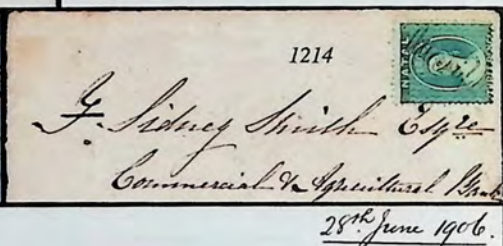 NATAL
1214
F. Sidney Smith Esqre
Commercial & Agricultural Bank
28th June 1906.